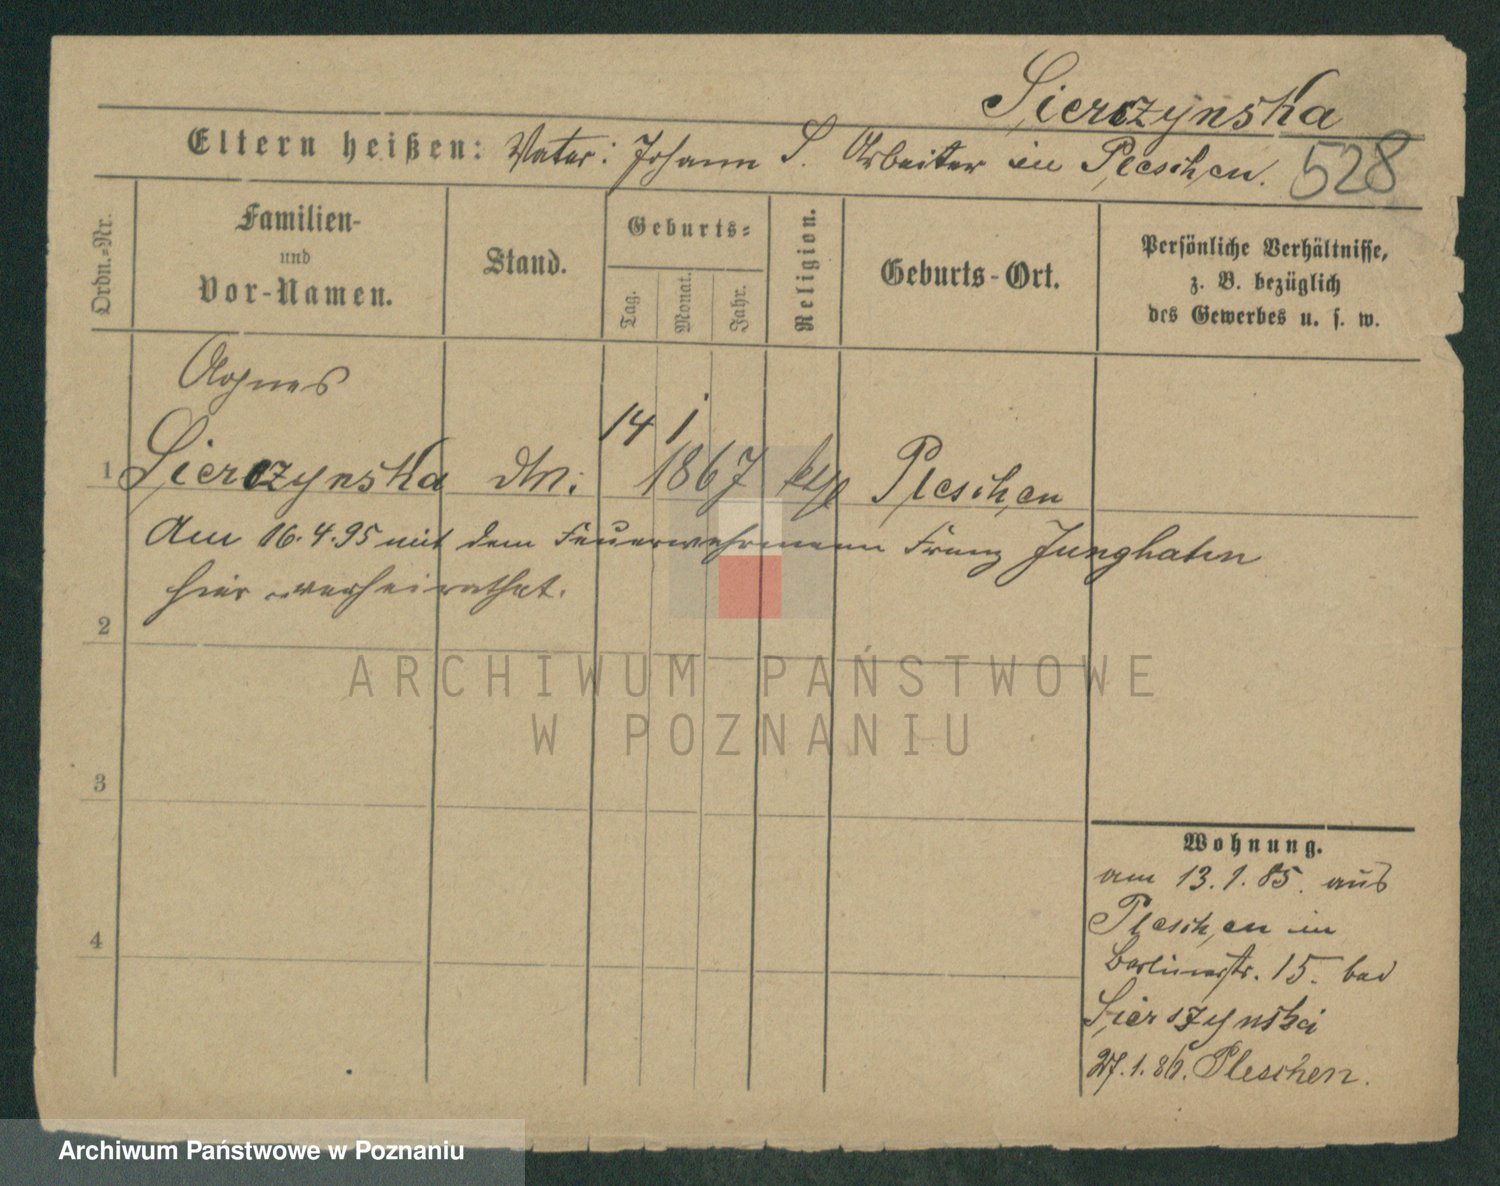 Sierczynska
Eltern heißen: Vater: Johann S. Arbeiter in Pleschen. 528
Ordn.-Nr.
Familien-
und
Vor-Namen.
Stand.
Geburts-
Tag.
Monat.
Jahr.
Religion.
Geburts-Ort.
Persönliche Verhältnisse,
z. B. bezüglich
des Gewerbes u. s. w.
Agnes
14 1
1 Sierczynska 1867 kath Pleschen
Am 16.4.95 mit dem Feuerwehrmann Franz
hier verheirathet.
2
3
4
Wohnung.
am 13.1.85. aus
Pleschen in
Berlinerstr. 15. bei
Sierszynski
27.1.86. Pleschen.
ARCHIWUM PAŃSTWOWE
W POZNANIU
Archiwum Państwowe w Poznaniu